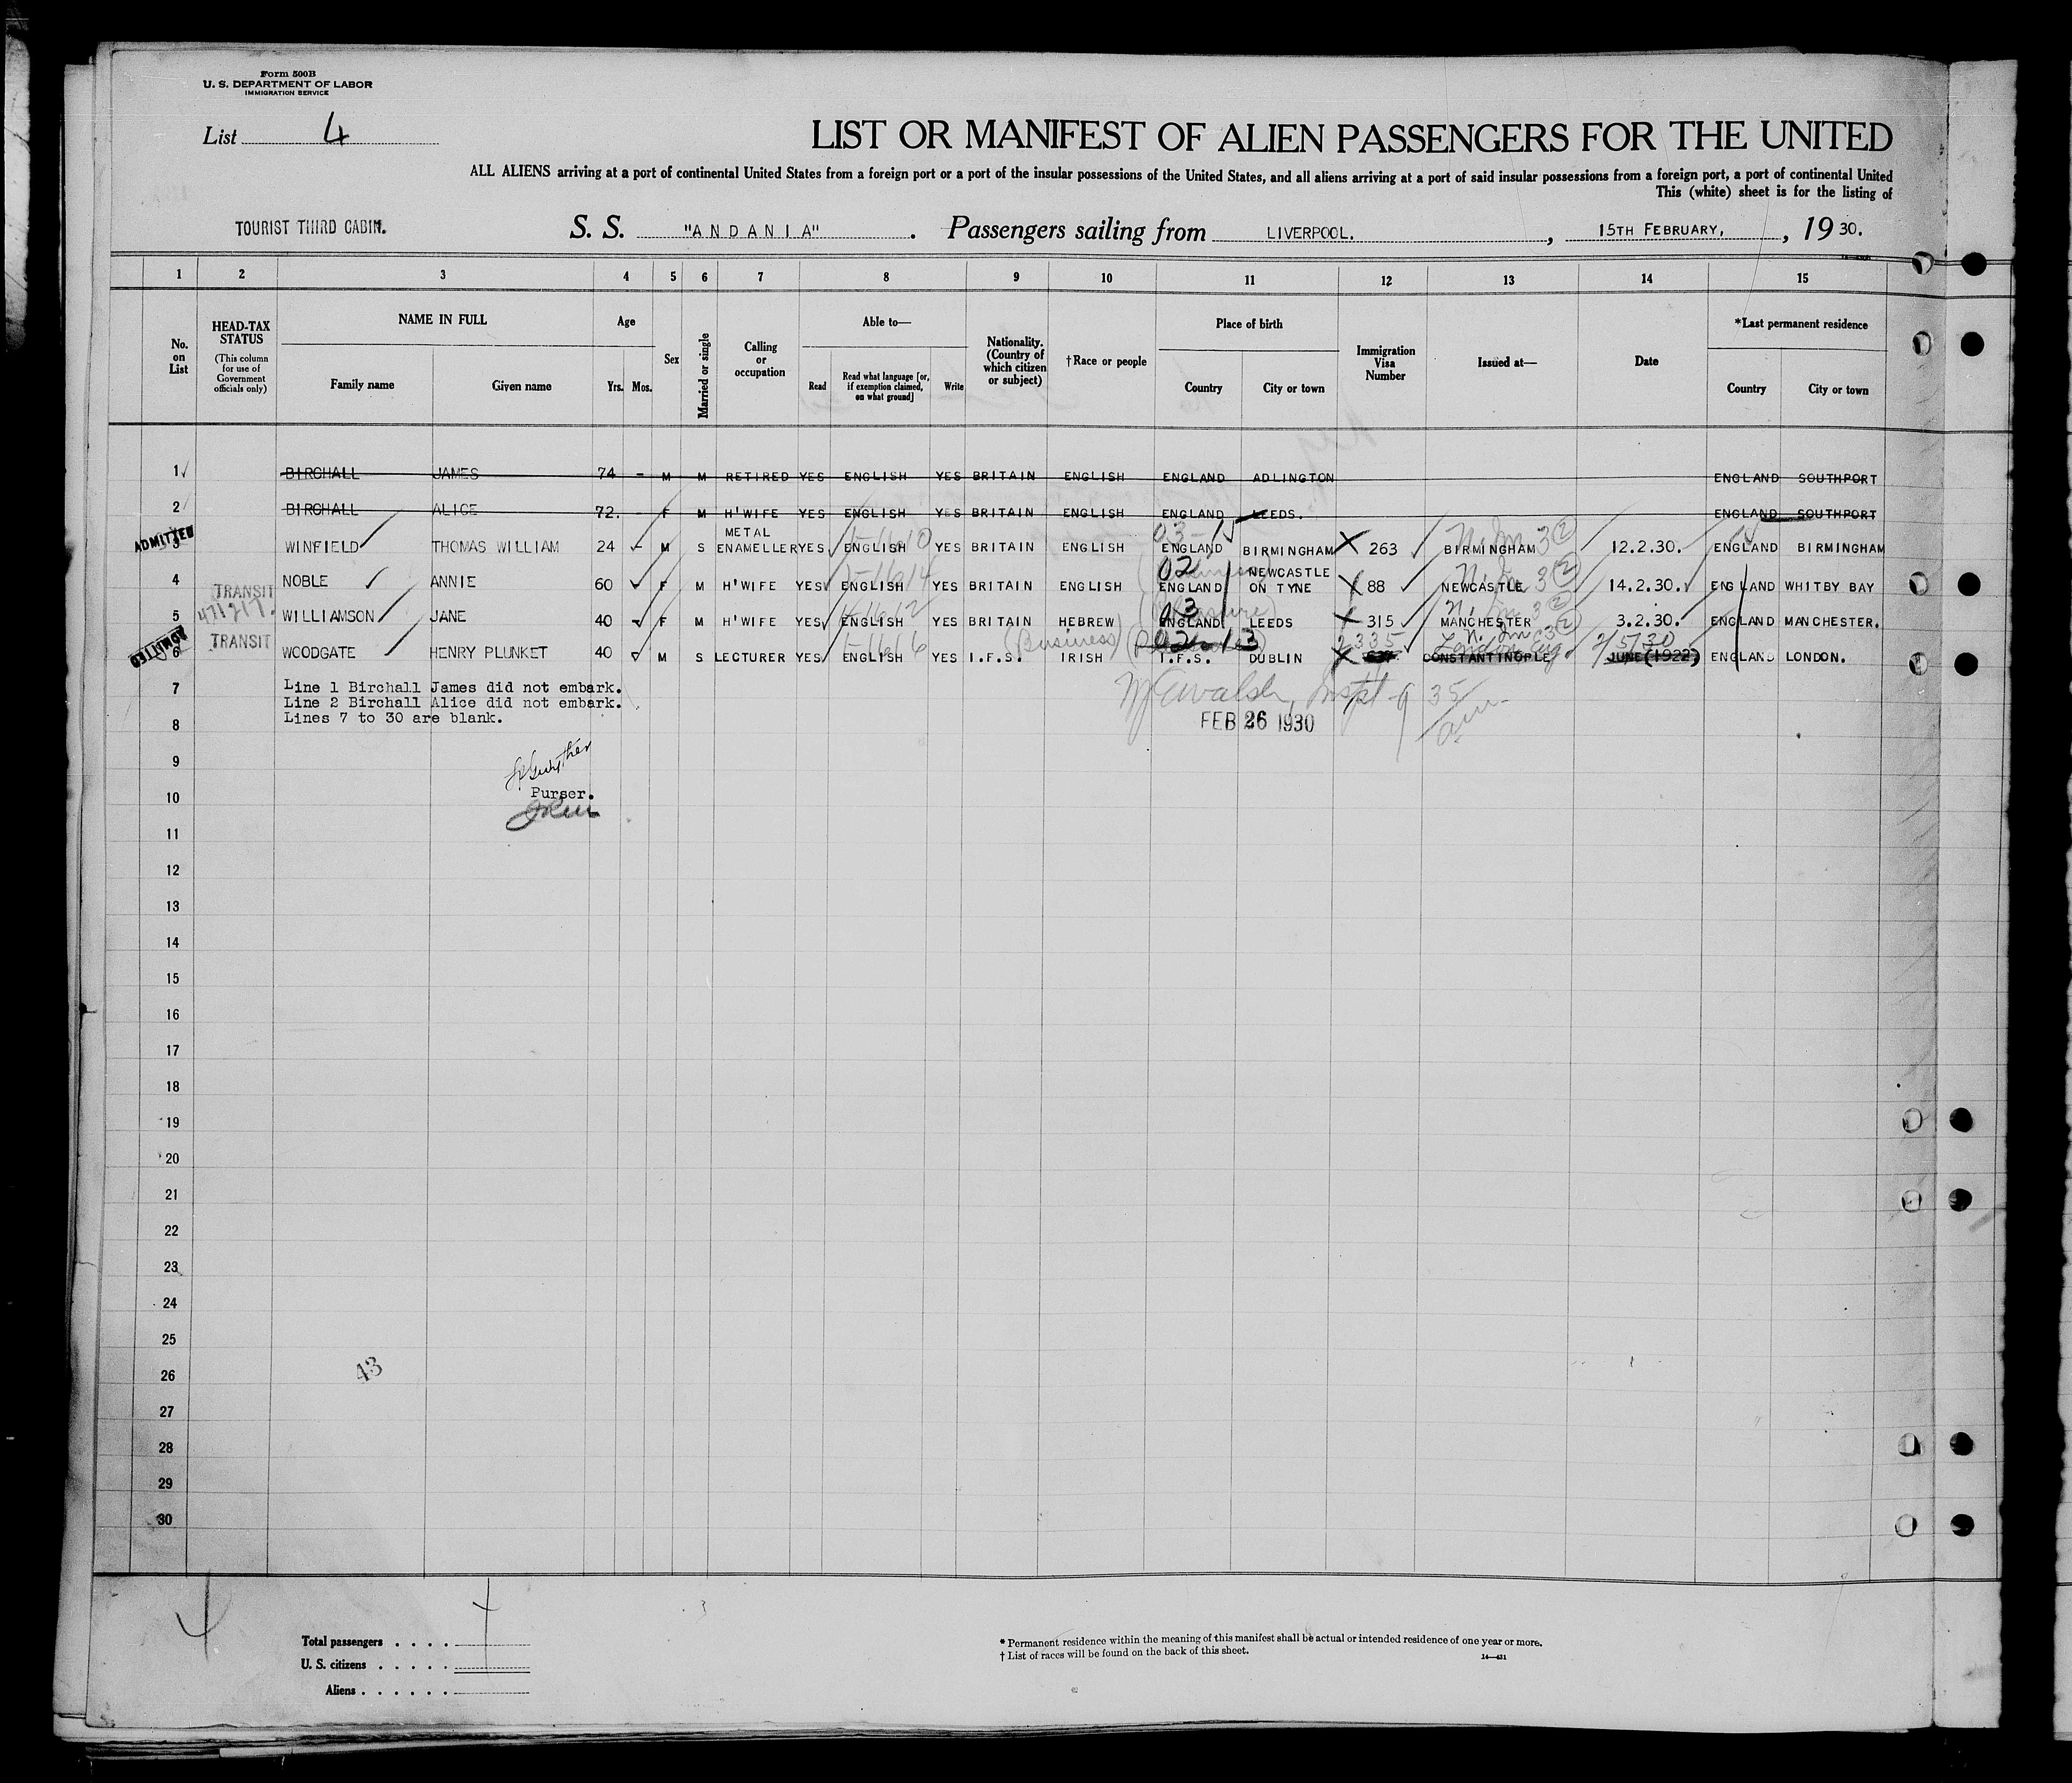 Form 500B
U. S. DEPARTMENT OF LABOR
IMMIGRATION SERVICE
List 4
LIST OR MANIFEST OF ALIEN PASSENGERS FOR THE UNITED
ALL ALIENS arriving at a port of continental United States from a foreign port or a port of the insular possessions of the United States, and all aliens arriving at a port of said insular possessions from a foreign port, a port of continental United
This (white) sheet is for the listing of
TOURIST THIRD CABIN. S. S. "ANDANIA". Passengers sailing from LIVERPOOL., 15TH FEBRUARY,, 1930.
1 2 3 4 5 6 7 8 9 10 11 12 13 14 15
No. on List
HEAD-TAX STATUS (This column for use of Government officials only)
NAME IN FULL
Family name Given name
Age
Yrs. Mos.
Sex
Married or single
Calling or occupation
Able to—
Read Read what language [or, if exemption claimed, on what ground] Write
Nationality. (Country of which citizen or subject)
†Race or people
Place of birth
Country City or town
Immigration Visa Number
Issued at—
Date
*Last permanent residence
Country City or town
1 BIRCHALL JAMES 74 - M M RETIRED YES ENGLISH YES BRITAIN ENGLISH ENGLAND ADLINGTON ENGLAND SOUTHPORT
2 BIRCHALL ALICE 72. F M H'WIFE YES ENGLISH YES BRITAIN ENGLISH ENGLAND LEEDS. ENGLAND SOUTHPORT
ADMITTED
3 WINFIELD THOMAS WILLIAM 24 - M S METAL ENAMELLER YES ENGLISH YES BRITAIN ENGLISH ENGLAND BIRMINGHAM X 263 BIRMINGHAM 12.2.30. ENGLAND BIRMINGHAM
4 TRANSIT NOBLE ANNIE 60 F M H'WIFE YES ENGLISH YES BRITAIN ENGLISH 02 ENGLAND NEWCASTLE ON TYNE X 88 NEWCASTLE 14.2.30. ENGLAND WHITBY BAY
5 WILLIAMSON JANE 40 - F M H'WIFE YES ENGLISH YES BRITAIN HEBREW ENGLAND LEEDS X 315 MANCHESTER 3.2.30. ENGLAND MANCHESTER.
ADMITTED
6 TRANSIT WOODGATE HENRY PLUNKET 40 M S LECTURER YES ENGLISH YES I.F.S. (Business) IRISH I.F.S. DUBLIN X 2335 CONSTANTINOPLE London Eng. JUNE (1922) 2/5/30 ENGLAND LONDON.
7 Line 1 Birchall James did not embark.
Line 2 Birchall Alice did not embark.
8 Lines 7 to 30 are blank.
FEB 26 1930
9
10 Purser.
11
12
13
14
15
16
17
18
19
20
21
22
23
24
25
26 43
27
28
29
30
Total passengers . . . .
U. S. citizens . . . . .
Aliens . . . . . .
* Permanent residence within the meaning of this manifest shall be actual or intended residence of one year or more.
† List of races will be found on the back of this sheet.
14—431